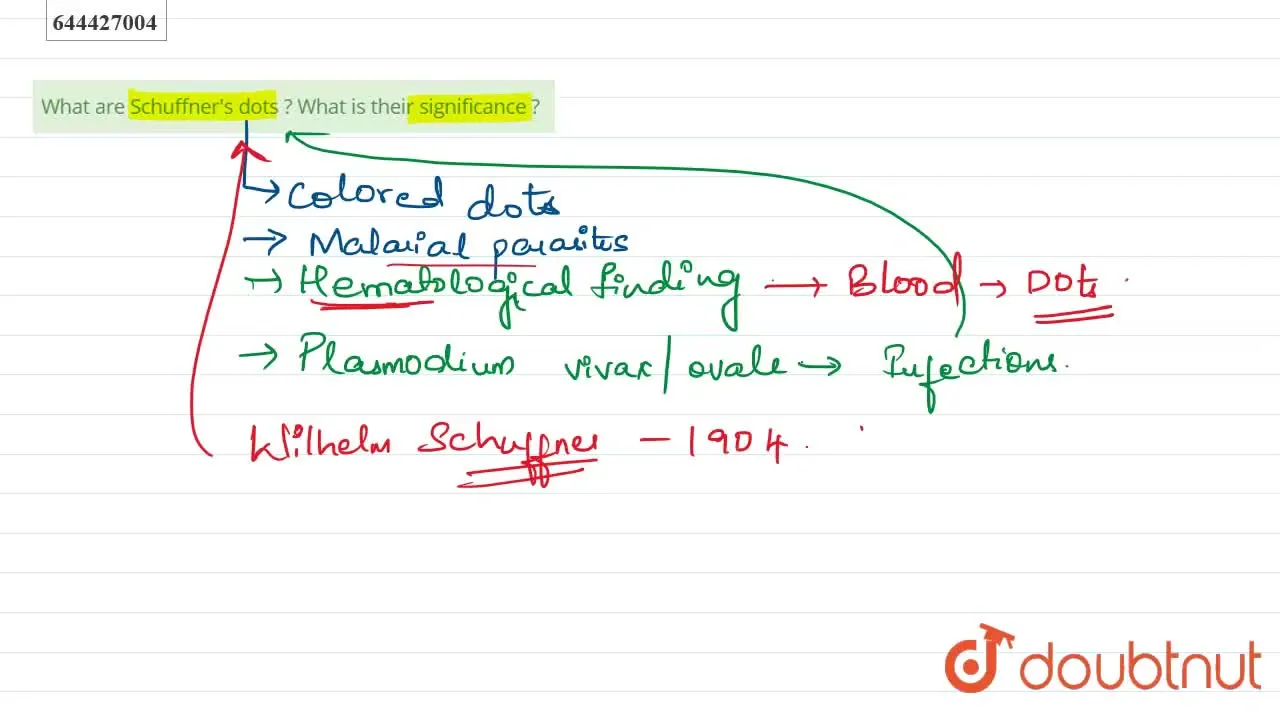 644427004
What are Schuffner's dots ? What is their significance ?
→ Colored dots
→ Malarial parasites
→ Hematological finding → Blood → Dots.
→ Plasmodium vivax/ovale → Infections.
Wilhelm Schuffner - 1904.
doubtnut